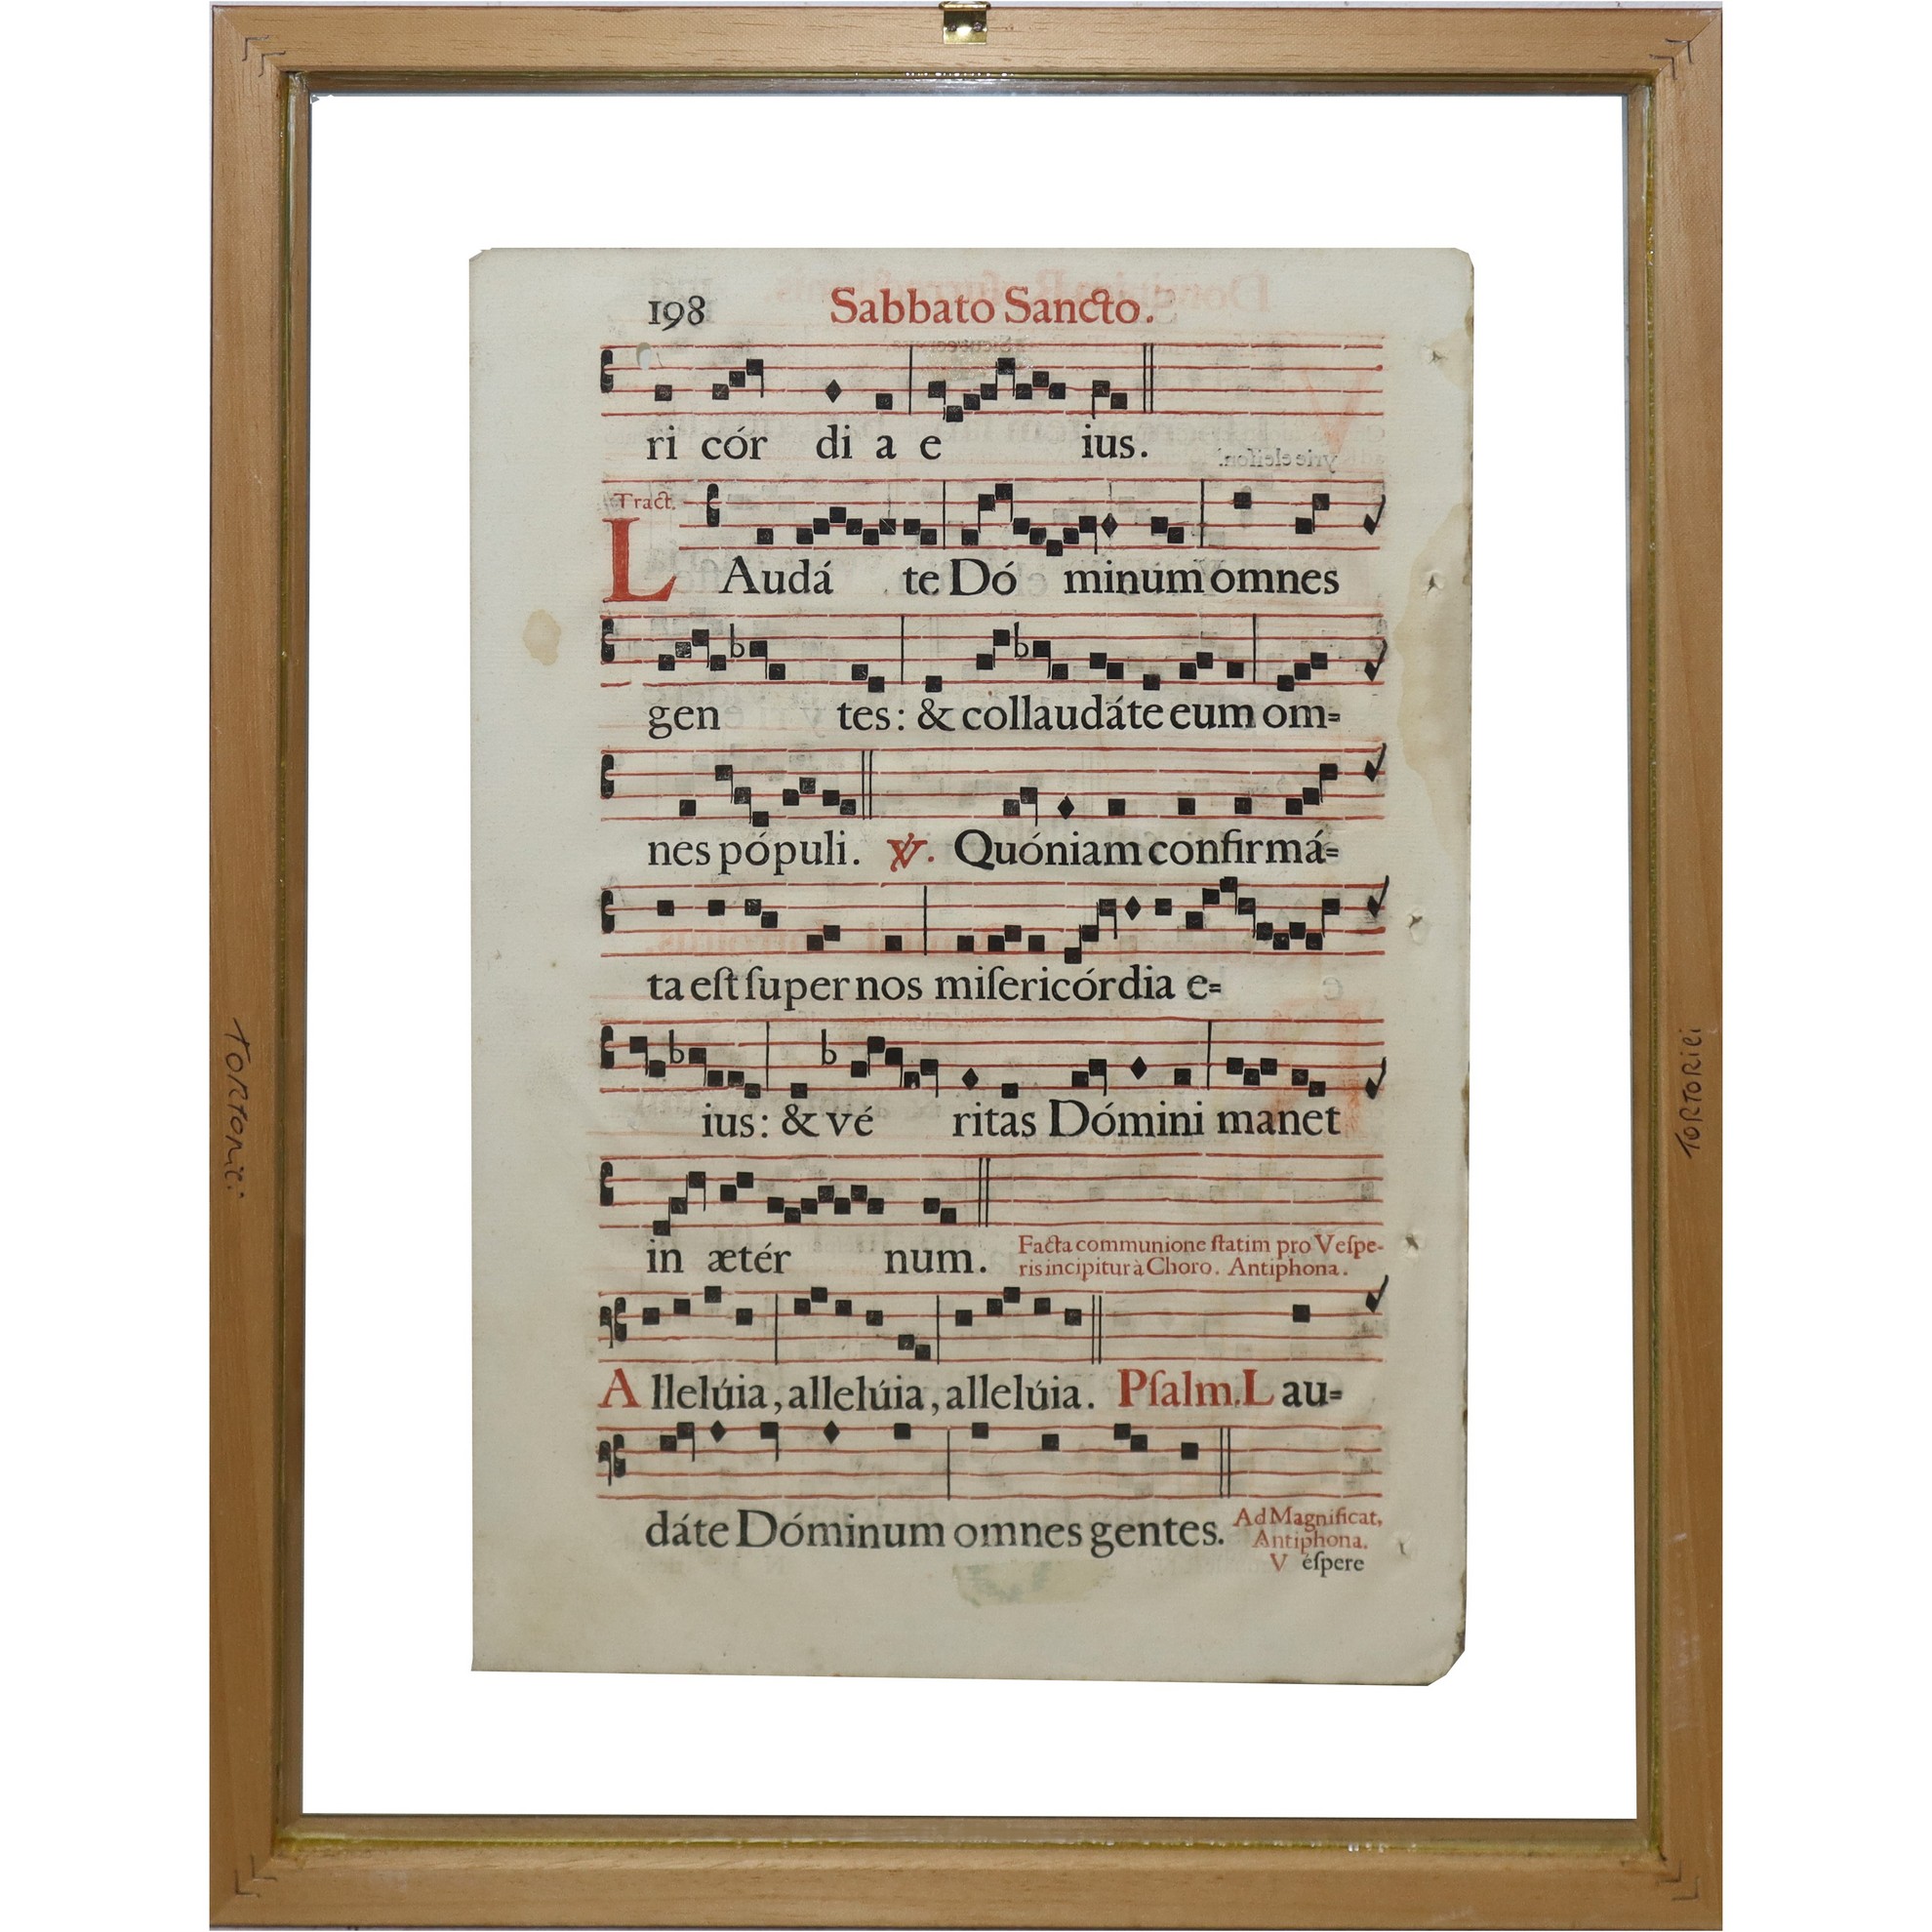 198 Sabbato Sancto.
ri cór di a e ius.
Tract.
LAudá te Dó minum omnes
gen tes: & collaudáte eum om=
nes pópuli. ℣. Quóniam confirmá=
ta eſt ſuper nos miſericórdia e=
ius: & vé ritas Dómini manet
in ætér num. Facta communione ſtatim pro Veſpe-
ris incipitur à Choro. Antiphona.
Allelúia, allelúia, allelúia. Pſalm. Lau=
dáte Dóminum omnes gentes. Ad Magnificat,
Antiphona.
Véſpere
TORTORici
TORTORici